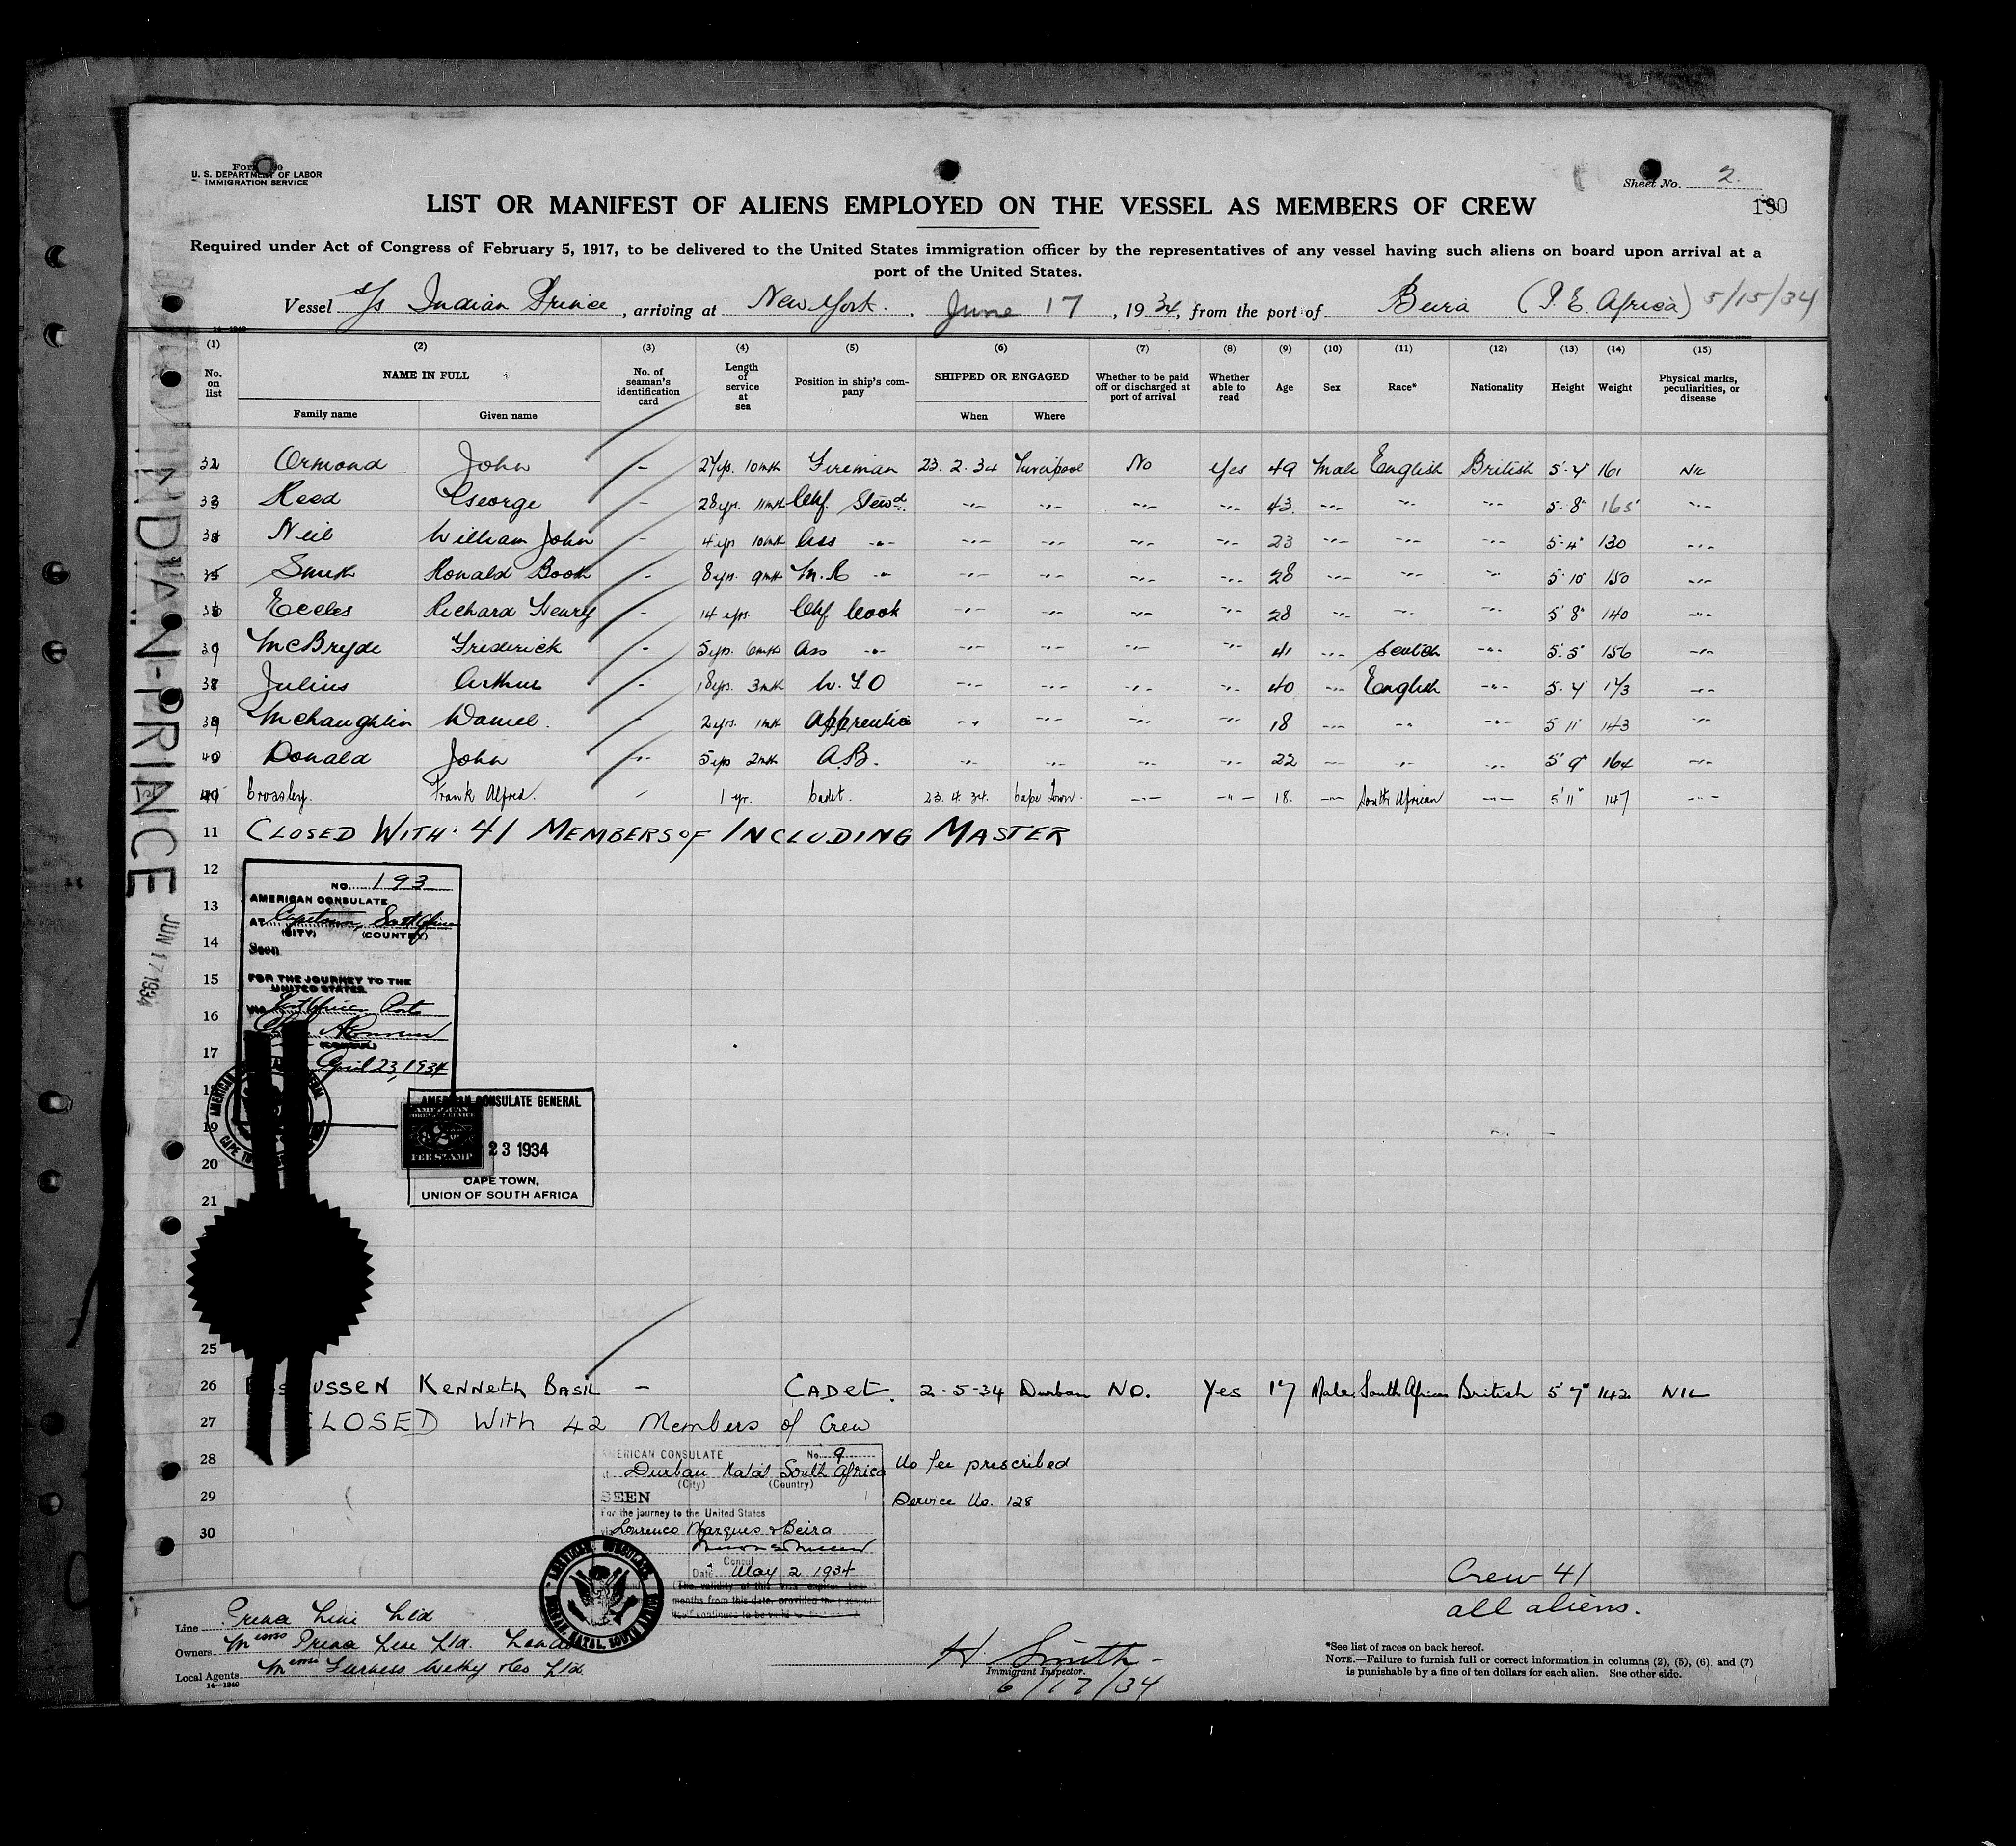 Form
U. S. DEPARTMENT OF LABOR
IMMIGRATION SERVICE
Sheet No. 2.
190
LIST OR MANIFEST OF ALIENS EMPLOYED ON THE VESSEL AS MEMBERS OF CREW
Required under Act of Congress of February 5, 1917, to be delivered to the United States immigration officer by the representatives of any vessel having such aliens on board upon arrival at a
port of the United States.
Vessel s/s Indian Prince, arriving at New York. June 17, 1934, from the port of Beira (P. E. Africa) 5/15/34
(1) (2) (3) (4) (5) (6) (7) (8) (9) (10) (11) (12) (13) (14) (15)
No. on list NAME IN FULL Family name Given name No. of seaman's identification card Length of service at sea Position in ship's company SHIPPED OR ENGAGED When Where Whether to be paid off or discharged at port of arrival Whether able to read Age Sex Race* Nationality Height Weight Physical marks, peculiarities, or disease
32 Ormond John - 27yrs. 10mth Fireman 23. 2. 34 Liverpool No Yes 49 Male English British 5'.4" 161 Nil
33 Reed George - 28yrs. 11mth Chf. Stewd. -"- -"- -"- -"- 43. -"- -"- -"- 5'.8" 165 -"-
34 Neil William John - 4yrs 10mth Ass -"- -"- -"- -"- -"- 23 -"- -"- -"- 5'.4" 130 -"-
35 Smith Ronald Booth - 8yrs. 9mth M.R -"- -"- -"- -"- -"- 28 -"- -"- -"- 5'.10" 150 -"-
36 Eccles Richard Henry - 14 yrs. Chf Cook -"- -"- -"- -"- 28 -"- -"- -"- 5'8" 140 -"-
37 McBryde Frederick - 5yrs. 6mth Ass -"- -"- -"- -"- -"- 41 -"- Scotch -"- 5'.5" 156 -"-
38 Julius Arthur - 18yrs. 3mth W.T.O -"- -"- -"- -"- 40 -"- English -"- 5'.4" 173 -"-
39 McLaughlin Daniel. - 2yrs. 1mth Apprentice -"- -"- -"- -"- 18 -"- -"- -"- 5'11" 143 -"-
40 Donald John -"- 5yrs 2mth A.B. -"- -"- -"- -"- 22 -"- -"- -"- 5'9" 164 -"-
Crossley. Frank Alfred. - 1 yr. Cadet. 23. 4. 34. Cape Town. -"- -"- 18. -"- South African -"- 5'11" 147 -"-
11 CLOSED WITH 41 MEMBERS OF INCLUDING MASTER
12
13
14
15
16
17
18
19
20
21
NO. 193
AMERICAN CONSULATE
AT Capetown, South Africa
(CITY) (COUNTRY)
Seen
FOR THE JOURNEY TO THE
UNITED STATES.
VIA East African Ports
(CONSUL)
April 23, 1934
AMERICAN CONSULATE GENERAL
AMERICAN FOREIGN SERVICE
FEE STAMP
23 1934
CAPE TOWN,
UNION OF SOUTH AFRICA
25
26 USSEN KENNETH BASIL - CADET. 2-5-34 Durban NO. Yes 17 Male South African British 5'7" 142 NIL
27 CLOSED With 42 Members of Crew
28
29
30
AMERICAN CONSULATE No. 9
Durban Natal South Africa
(City) (Country)
SEEN
For the journey to the United States
via Lourenco Marques & Beira
Consul
Date May 2 1934
(The validity of this visa expires
months from this date, provided the passport
itself continues to be valid
No fee prescribed
Service No. 128
Crew 41
all aliens.
Line Prince Line Ltd
Owners Messrs Prince Line Ltd.
Local Agents Messrs Furness Withy & Co Ltd.
14—1240
H Smith
Immigrant Inspector.
6/17/34
*See list of races on back hereof.
NOTE.—Failure to furnish full or correct information in columns (2), (5), (6) and (7)
is punishable by a fine of ten dollars for each alien. See other side.
INDIAN-PRINCE
JUN 17 1934